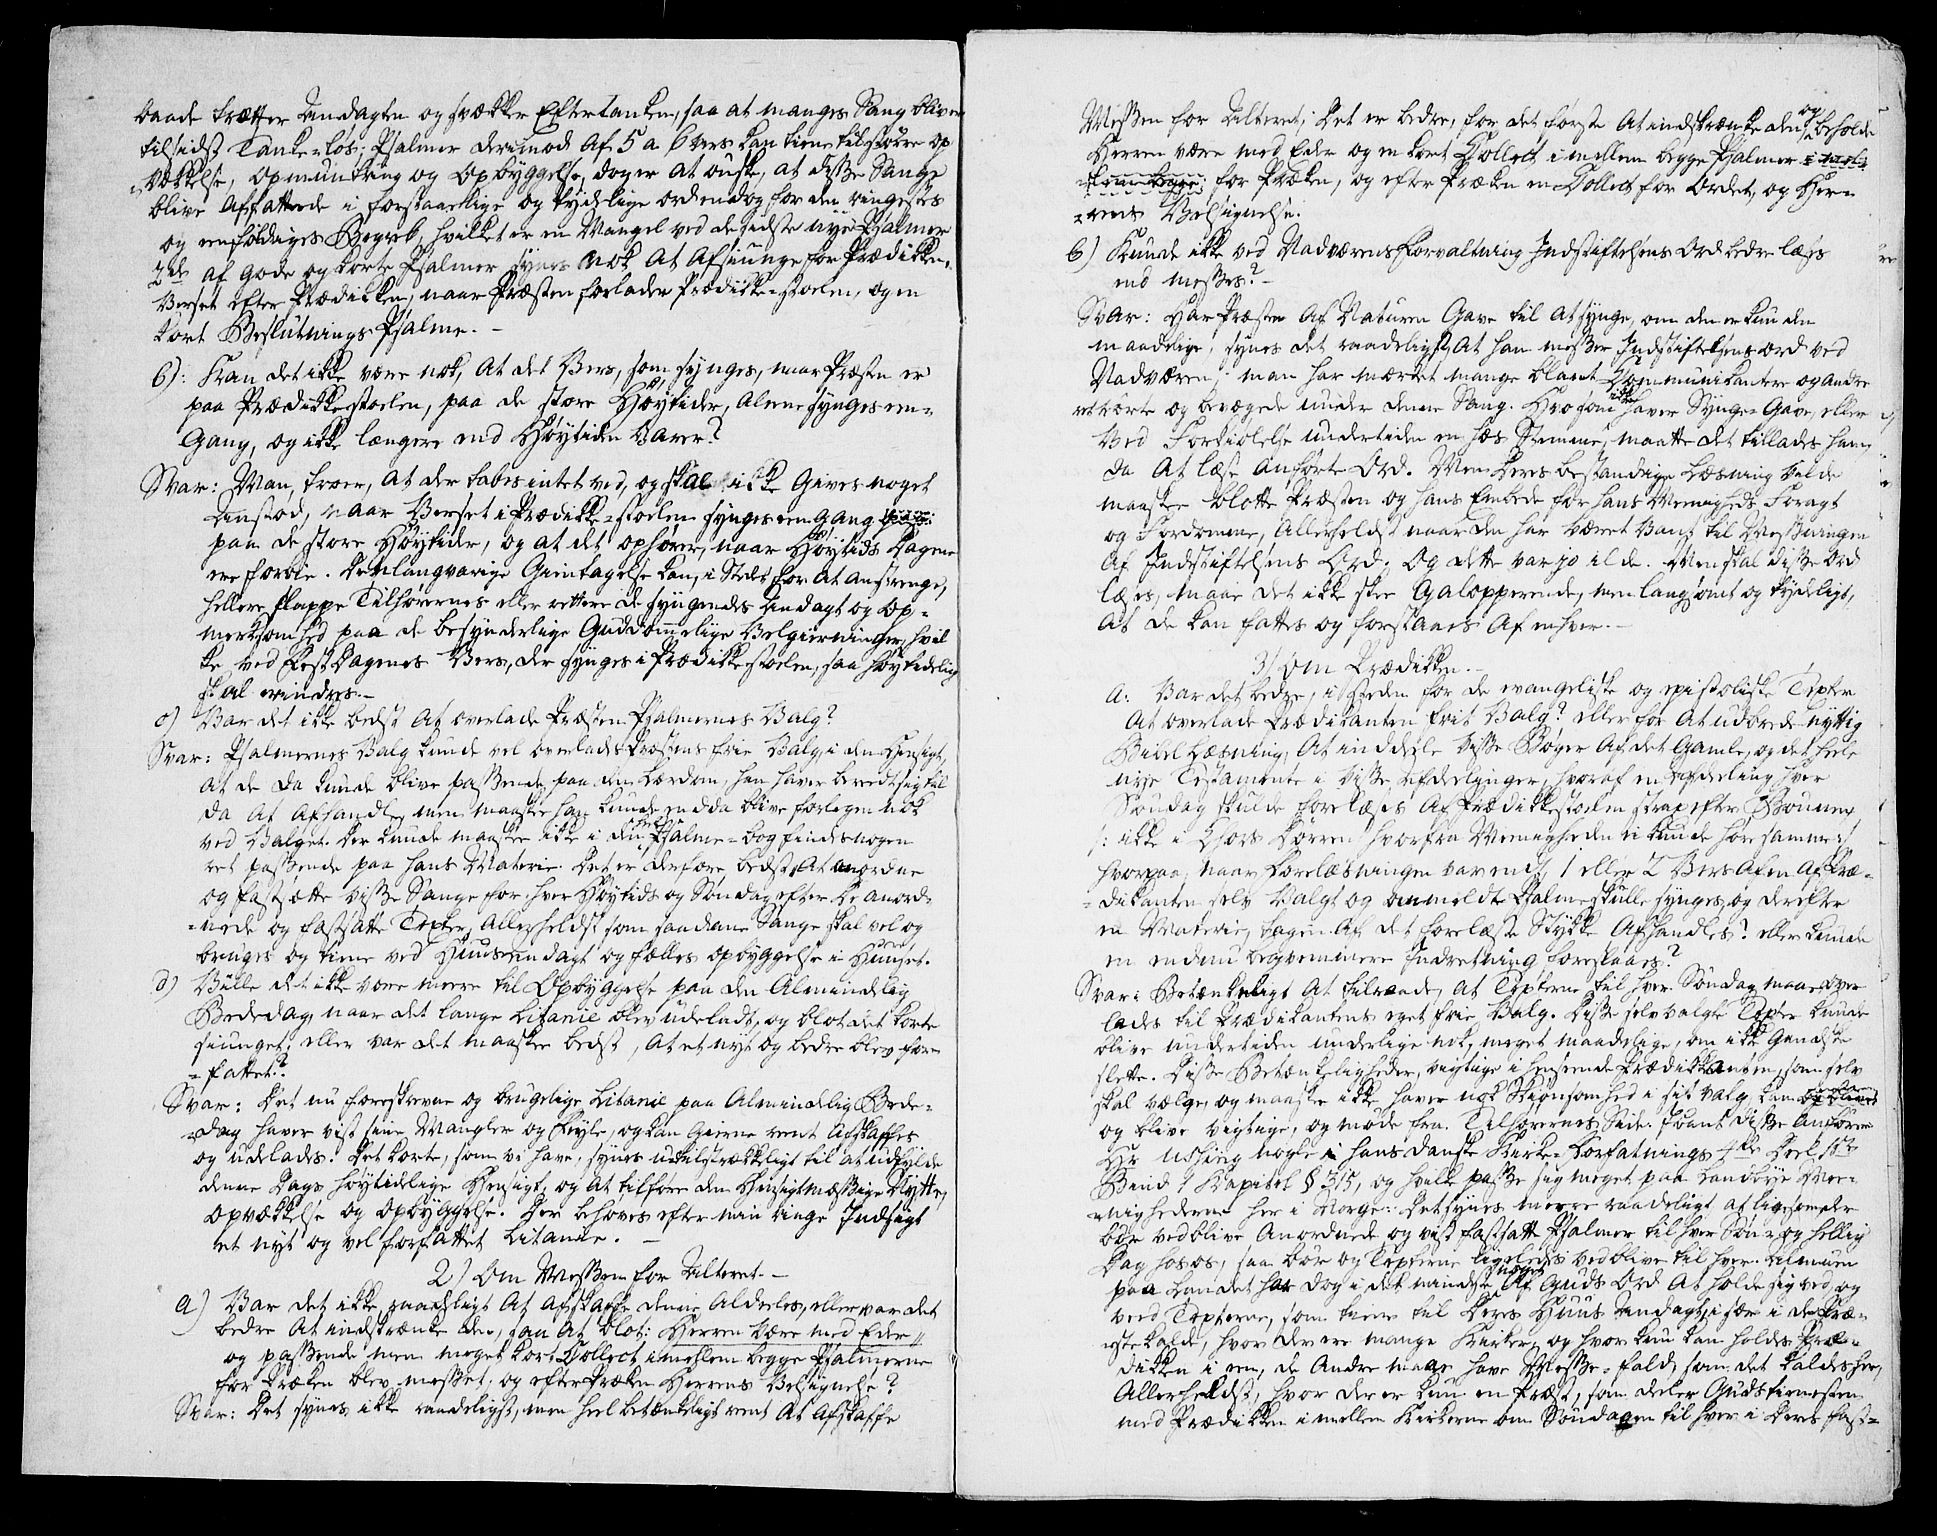 baade trætter Andagten og svækker Eftertanken, saa at manges Sang bliver
tilsidst Tanke-løs; Psalmer derimod af 5 a 6 vers kan tiene til større Op
-vækkelse, opmuntring og Opbyggelse, dog er at ønske, at disse Sange
blive affattede i forstaaelige og tydelige orden dog for den ringestes
og eenfoldiges Begreb, hvilket er en Mangel ved de sidste nye Psalmer
2de af gode og korte Psalmer synes nok at afsiunge for Prædikken,
Verset efter Prædikken, naar Præsten forlader Prædikke-stoelen, og en
kort Beslutnings Psalme. -
b): Kan det ikke være nok, at det Vers, som synges, naar Præsten er
paa Prædikkestoelen, paa de store Høytider, alene synges en-
Gang, og ikke længere end Høytiden varer?
Svar: Man troer, at der tabes intet ved, og skal ikke gives noget
Anstød, naar Verset i Prædikke-stoelen synges een gang
paa de store Høytider, og at det ophører, naar Høytids Dagene
ere forbie. Den langvarige Gientagelse kan, i Steds for at anstrenge,
hellere slappe Tilhørernes eller rettere de syngendes Andagt og Op-
merksomhed paa de besynderlige Guddommelige Velgierninger, hvil
ke ved Fest Dagenes Vers, der synges i Prædikkestoelen, saa høytidelig
skal erindres. -
c) Var det ikke bedst at overlade Præsten Psalmernes Valg?
Svar: Psalmernes Valg kunde vel overlades Præstens frie Valg, i den Hensigt,
at de da kunde blive passende paa den Lærdom, han haver beredt sig til
da at afhandle, men maaskee han kunde endda blive forlegen nok
ved Valget. Der kunde maaskee ikke i den Psalme-bog findes nogen
ret passende paa hans Materie. Det er derfore bedst, at anordne
og fastsætte visse Sange for hver Høytids og Søndag efter de anord-
-nede og fastsatte Texter, allerhelst som saadane Sange skal vel og
bruges og tiene ved Huus andagt og fælles opbyggelse i Huuset.
d) Ville det ikke være meere til Opbyggelse paa den Almindelig
Bededag, naar det lange Litanie blev udeladt, og blot det korte
siunget, eller var det maaskee bedst, at et nyt og bedre blev for-
-fattet?
Svar: Det nu foreskrevne og brugelige Litanie paa Almindelig Bede-
-dag haver vist sine Mangler og Feyle, og kan gierne reent afskaffes
og udelades. Det korte, som vi have, synes utilstrækkeligt til at udfylde
denne Dags høytidelige Hensigt, og at tilføre den Hensigtmæssige Nytte,
Opvækkelse og Opbyggelse. Der behøves efter min ringe Indsigt
et nyt og vel forfattet Litanie. -
2) Om Messen for Alteret. -
a) Var det ikke raadeligt at afskaffe denne alderles, eller var det
bedre at indskrænke den, saa at blot: Herren være med Eder
og passende men meget kort Collect imellem begge Psalmerne
for Præken blev messet, og efter Præken Herrens Velsignelse?
Svar: Det synes ikke raadeligst, men heel betænkeligt reent at afskaffe
Messen for Alteret, det er bedre, for det første at indskrænke den, og beholde
Herren være med Eder og en kort Collect imellem begge Psalmer
for Præken, og efter Præken en Collect for Ordet, og Her-
-rens Velsignelse.
b) Kunde ikke ved Nadverens Forvaltning Indstiftelsens Ord bedre læses
end messes? -
Svar: Har Præsten af Naturen Gave til at synge, om den er kun den
maadelige, synes det raadeligst, at han messer Indstiftelsens ord ved
Nadveren; man har mærket mange blant Communikantere og andre
rørte og bevægede under denne Sang. Hvo som ikke haver Synge-Gave, eller
ved Forkiølelse undertiden en hæs Stemme, maatte det tillades ham,
da at læse anførte Ord. Men deres bestandige Læsning vilde
maaskee blotte Præsten og hans Embede for hans Menigheds Foragt
og Fordomme, allerhelst naar den har været vant til Messningen
af Indstiftelsens Ord. Og dette var jo ilde. Men skal disse Ord
læses, maae det ikke skee Galopperende, men langsomt og tydeligt,
at de kan fattes og forstaaes af enhver. -
3) Om Prædiken. -
a. Var det bedre, i steden for de evangeliske og epistoliske Texter
at overlade Prædikanten frit Valg? eller for at udbrede nyttig
Bibel Læsning, at inddeele visse Bøger af det Gamle, og det heele
nye Testamente i visse Afdeelinger, hvoraf en Afdeeling hver
Søndag skulde forelæses af Prædikkestoelen strax efter Bønnen
/: ikke i Chors Dørren hvorfra Menigheden ei kunde høre samme :/
hvorpaa, naar Forelæsningen var endt, 1 eller 2 Vers af en af Præ-
-dikanten selv valgt og anmeldte Psalme skulle synges, og derefter
en Materie, tagen af det forelæste Stykke afhandles? eller kunde
en endnu beqvemmere Indretning foreslaaes?
Svar: Betænkeligt at tilraade, at Texterne til hver Søndag maae over
lades til Prædikantens eget frie Valg. Disse selvvalgte Texter kunde
blive undertiden underlige nok, meget maadelige, om ikke Gandske
slette. Disse Betænkeligheder, vigtige i henseende Prædikkanten, som selv
skal vælge, og maaskee ikke haver nok Skiønsomhed i sit valg, kan
og blive vigtige, og møde fra Tilhørernes Side. Foruden disse anfører
Hr Ushing nogle i hans danske Kirke-Forfatnings
Bind 1 Kapitel § 315, og hvilke passe sig meget paa Landbye Me-
-nighederne her i Norge: Det synes meere raadeligt at ligesom der
bør vedblive anordnede og vist fastsatte Psalmer til hver Søn- og hellig
Dag hos os, saa bør og Texterne ligeledes vedblive til hver. Almuen
paa Landet har dog i det mindste noget af Guds Ord at holde sig ved, og
ved Texterne, som tiene til deres Huus Andagt, i sær i de Præ-
-stekalde, hvor der ere mange Kirker, og hvor kun kan holdes Præ-
dikken i een, de andre maae have Messe-fald, som det kaldes her,
Allerhelst, hvor der er kun en Præst, som deeler Gudstienesten
med Prædikken imellem Kirkerne om Søndagen til hver i deres fast-